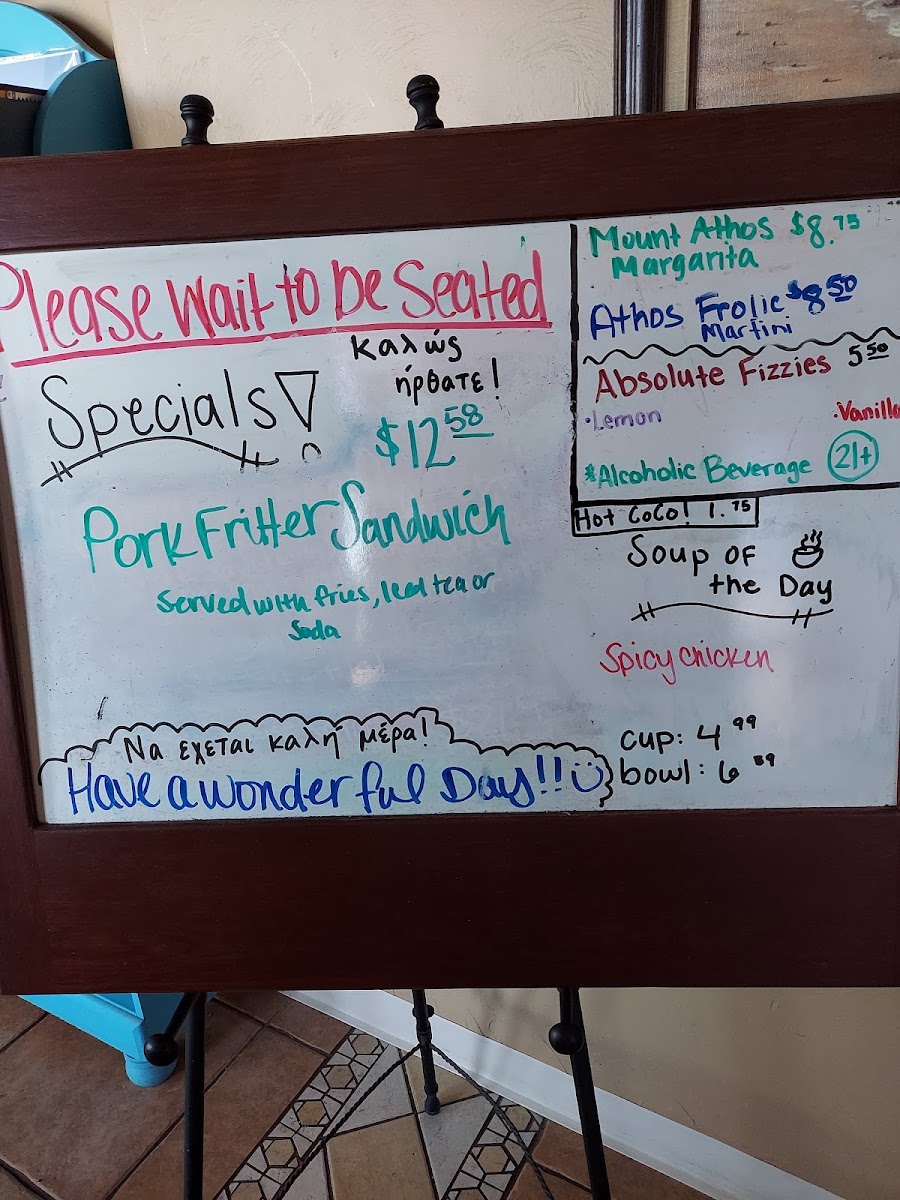 Please Wait to be Seated
Specials!
καλώς
ήρθατε!
$12 58
Pork Fritter Sandwich
Served with fries, Iced tea or
Soda
Να εχεται καλή μέρα!
Have a wonderful Day!!
Mount Athos $8.75
Margarita
Athos Frolic $8 50
Martini
Absolute Fizzies 5 50
·Lemon
·Vanilla
*Alcoholic Beverage 21+
Hot CoCo! 1.75
Soup of
the Day
Spicy chicken
cup: 4 99
bowl: 6